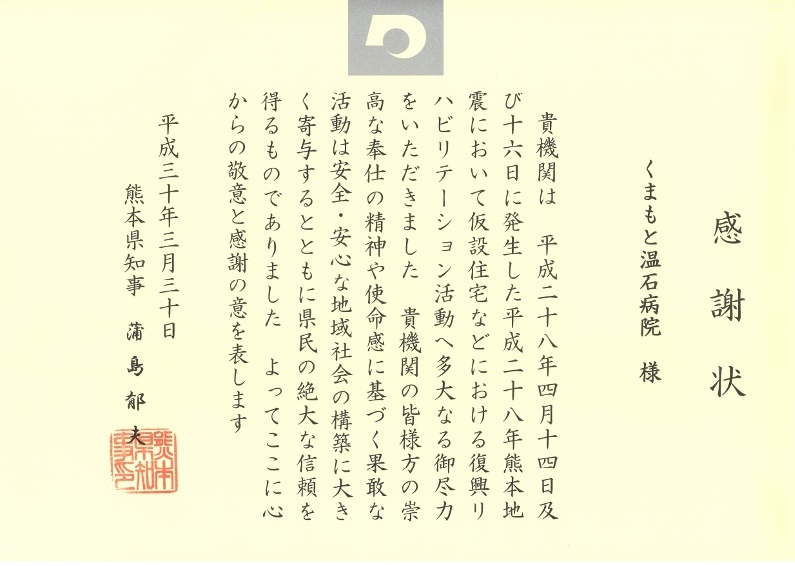 感謝状
くまもと温石病院　様
貴機関は　平成二十八年四月十四日及
び十六日に発生した平成二十八年熊本地
震において仮設住宅などにおける復興リ
ハビリテーション活動へ多大なる御尽力
をいただきました　貴機関の皆様方の崇
高な奉仕の精神や使命感に基づく果敢な
活動は安全・安心な地域社会の構築に大き
く寄与するとともに県民の絶大な信頼を
得るものでありました　よってここに心
からの敬意と感謝の意を表します
平成三十年三月三十日
熊本県知事　蒲島郁夫
熊本
県知
事印